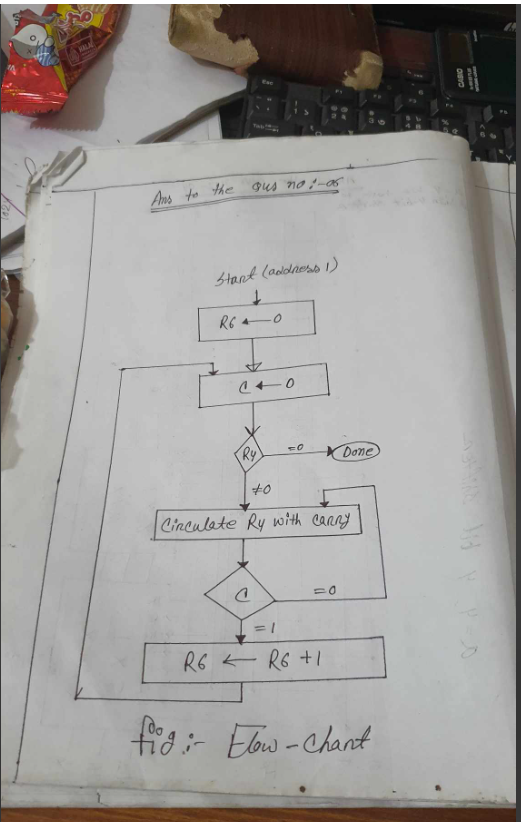 Ans to the Qus no:-05
Start (address 1)
R6 ← 0
C ← 0
R4
=0
Done
≠0
Circulate R4 with carry
C
=0
=1
R6 ← R6 +1
fig:- Flow-chart
CASIO